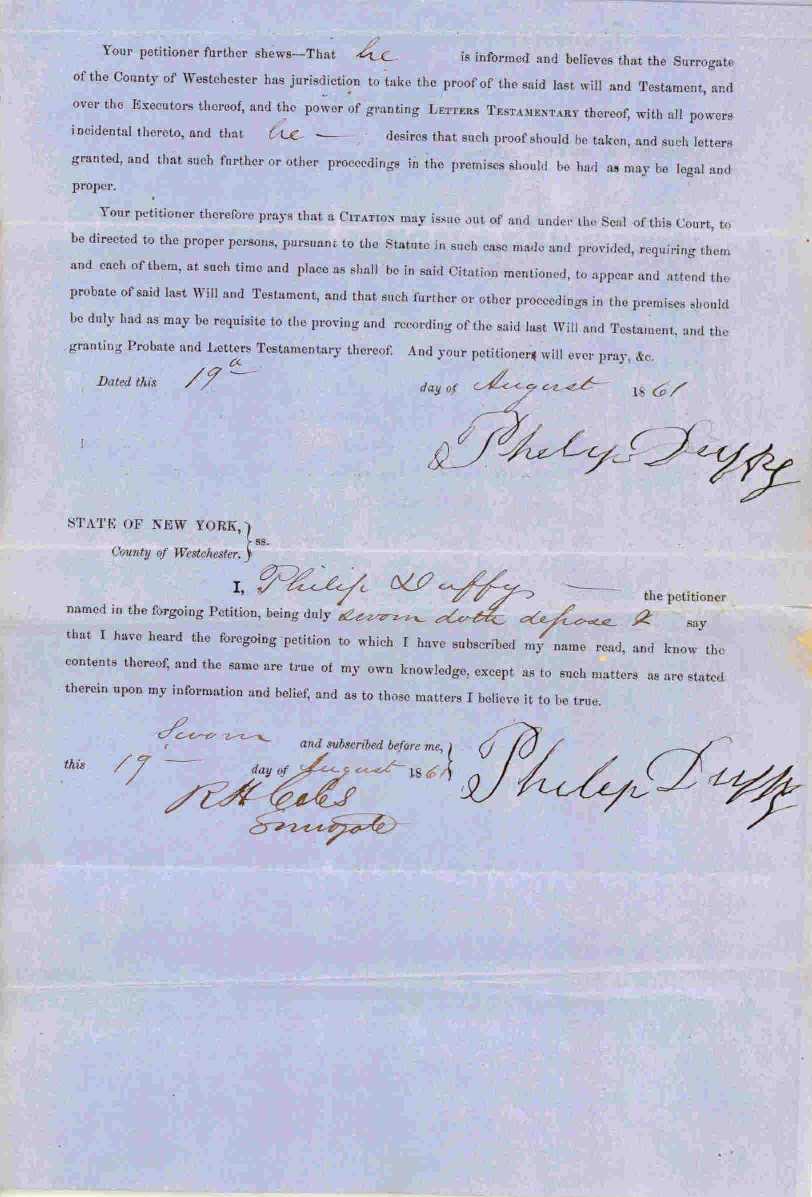 Your petitioner further shews—That he is informed and believes that the Surrogate
of the County of Westchester has jurisdiction to take the proof of the said last will and Testament, and
over the Executors thereof, and the power of granting LETTERS TESTAMENTARY thereof, with all powers
incidental thereto, and that he — desires that such proof should be taken, and such letters
granted, and that such further or other proceedings in the premises should be had as may be legal and
proper.
Your petitioner therefore prays that a CITATION may issue out of and under the Seal of this Court, to
be directed to the proper persons, pursuant to the Statute in such case made and provided, requiring them
and each of them, at such time and place as shall be in said Citation mentioned, to appear and attend the
probate of said last Will and Testament, and that such further or other proceedings in the premises should
be duly had as may be requisite to the proving and recording of the said last Will and Testament, and the
granting Probate and Letters Testamentary thereof. And your petitioners will ever pray, &c.
Dated this 19 day of August 1861
Philip Duffy
STATE OF NEW YORK, } ss.
County of Westchester. }
I, Philip Duffy — the petitioner
named in the forgoing Petition, being duly sworn doth depose & say
that I have heard the foregoing petition to which I have subscribed my name read, and know the
contents thereof, and the same are true of my own knowledge, except as to such matters as are stated
therein upon my information and belief, and as to those matters I believe it to be true.
Sworn and subscribed before me, }
this 19 — day of August 1861 }
Philip Duffy
R H Coles
Surrogate